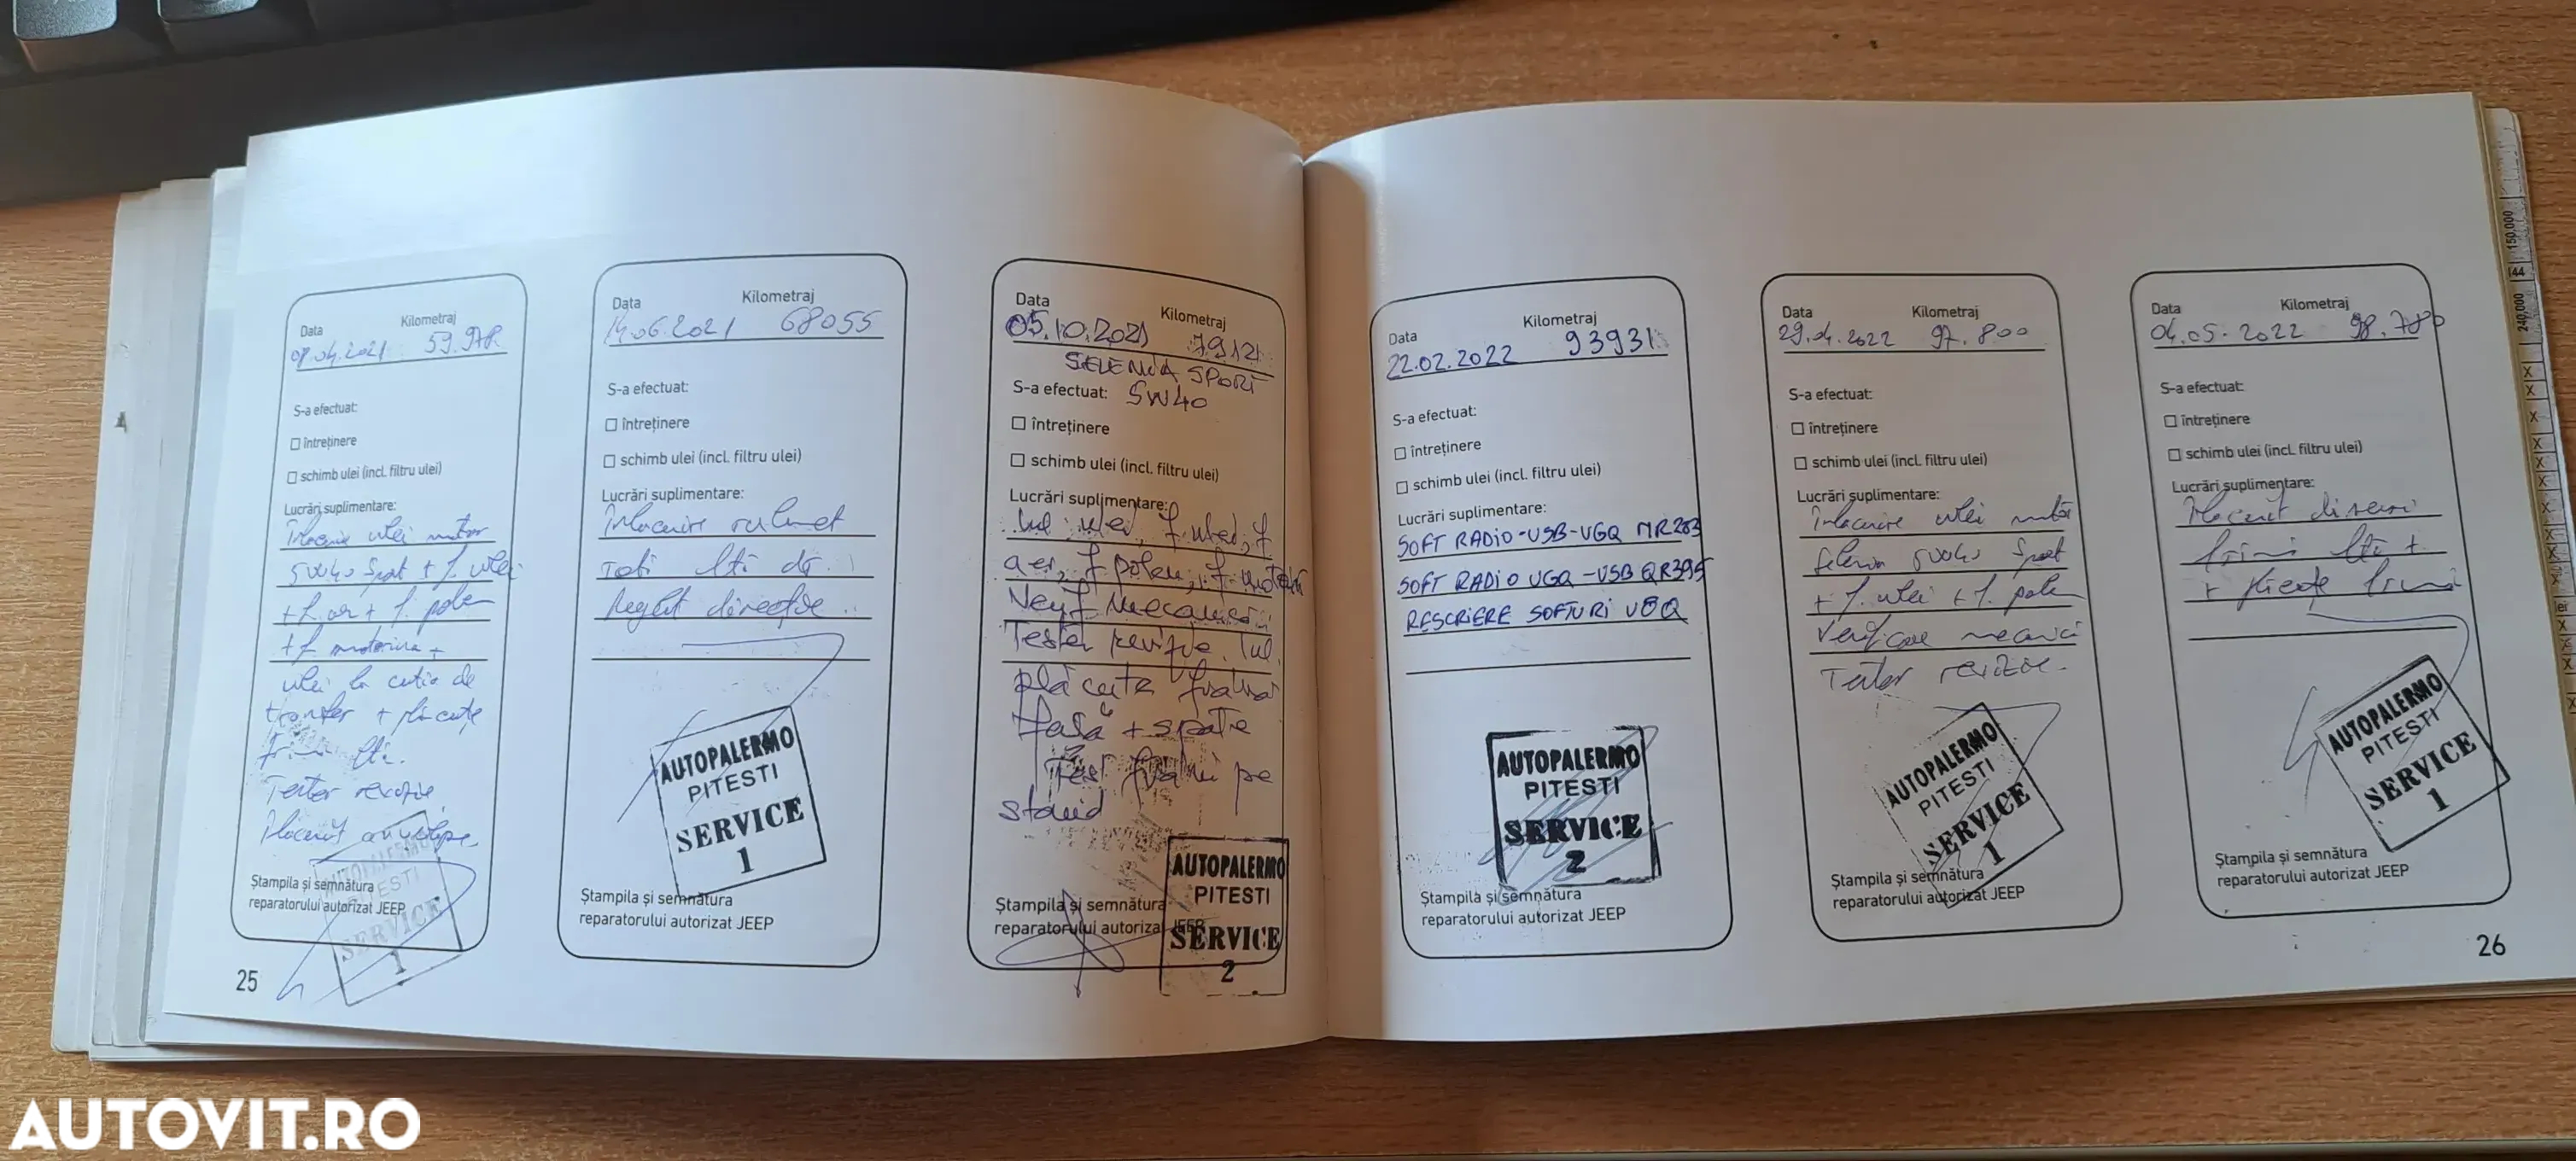 Data Kilometraj
08.04.2021 59.978
S-a efectuat:
întreținere
schimb ulei (incl. filtru ulei)
Lucrări suplimentare:
ulei motor
5W40 Sport + f. ulei
+ f. aer + f. polen
+ f. motorina +
ulei la cutia de
transfer + plăcuțe
Tester revizie
Ștampila și semnătura
reparatorului autorizat JEEP
SERVICE
1
25
Data Kilometraj
14.06.2021 68055
S-a efectuat:
întreținere
schimb ulei (incl. filtru ulei)
Lucrări suplimentare:
Înlocuire rulment
roti
Reglat direcție
AUTOPALERMO
PITESTI
SERVICE
1
Ștampila și semnătura
reparatorului autorizat JEEP
Data Kilometraj
05.10.2021
SELENIA SPORT
S-a efectuat: 5W40
întreținere
schimb ulei (incl. filtru ulei)
Lucrări suplimentare:
ulei, f. ulei, f
aer, f polen, f motorină
Verif mecanică
Tester revizie
plăcute
față + spate
Test pe
stand
AUTOPALERMO
PITESTI
SERVICE
2
Ștampila și semnătura
reparatorului autorizat JEEP
Data Kilometraj
22.02.2022 93931
S-a efectuat:
întreținere
schimb ulei (incl. filtru ulei)
Lucrări suplimentare:
SOFT RADIO-USB-VGQ MR283
SOFT RADIO VGQ-USB QR395
RESCRIERE SOFTURI
AUTOPALERMO
PITESTI
SERVICE
2
Ștampila și semnătura
reparatorului autorizat JEEP
Data Kilometraj
29.04.2022 97.800
S-a efectuat:
întreținere
schimb ulei (incl. filtru ulei)
Lucrări suplimentare:
Înlocuire ulei motor
Selenia 5W40 Sport
+ f. ulei + f. polen
Verificare mecanică
Tester revizie.
AUTOPALERMO
PITESTI
SERVICE
1
Ștampila și semnătura
reparatorului autorizat JEEP
Data Kilometraj
04.05.2022 98.780
S-a efectuat:
întreținere
schimb ulei (incl. filtru ulei)
Lucrări suplimentare:
Înlocuit discuri
AUTOPALERMO
PITESTI
SERVICE
1
Ștampila și semnătura
reparatorului autorizat JEEP
26
150.000
240.000
AUTOVIT.RO